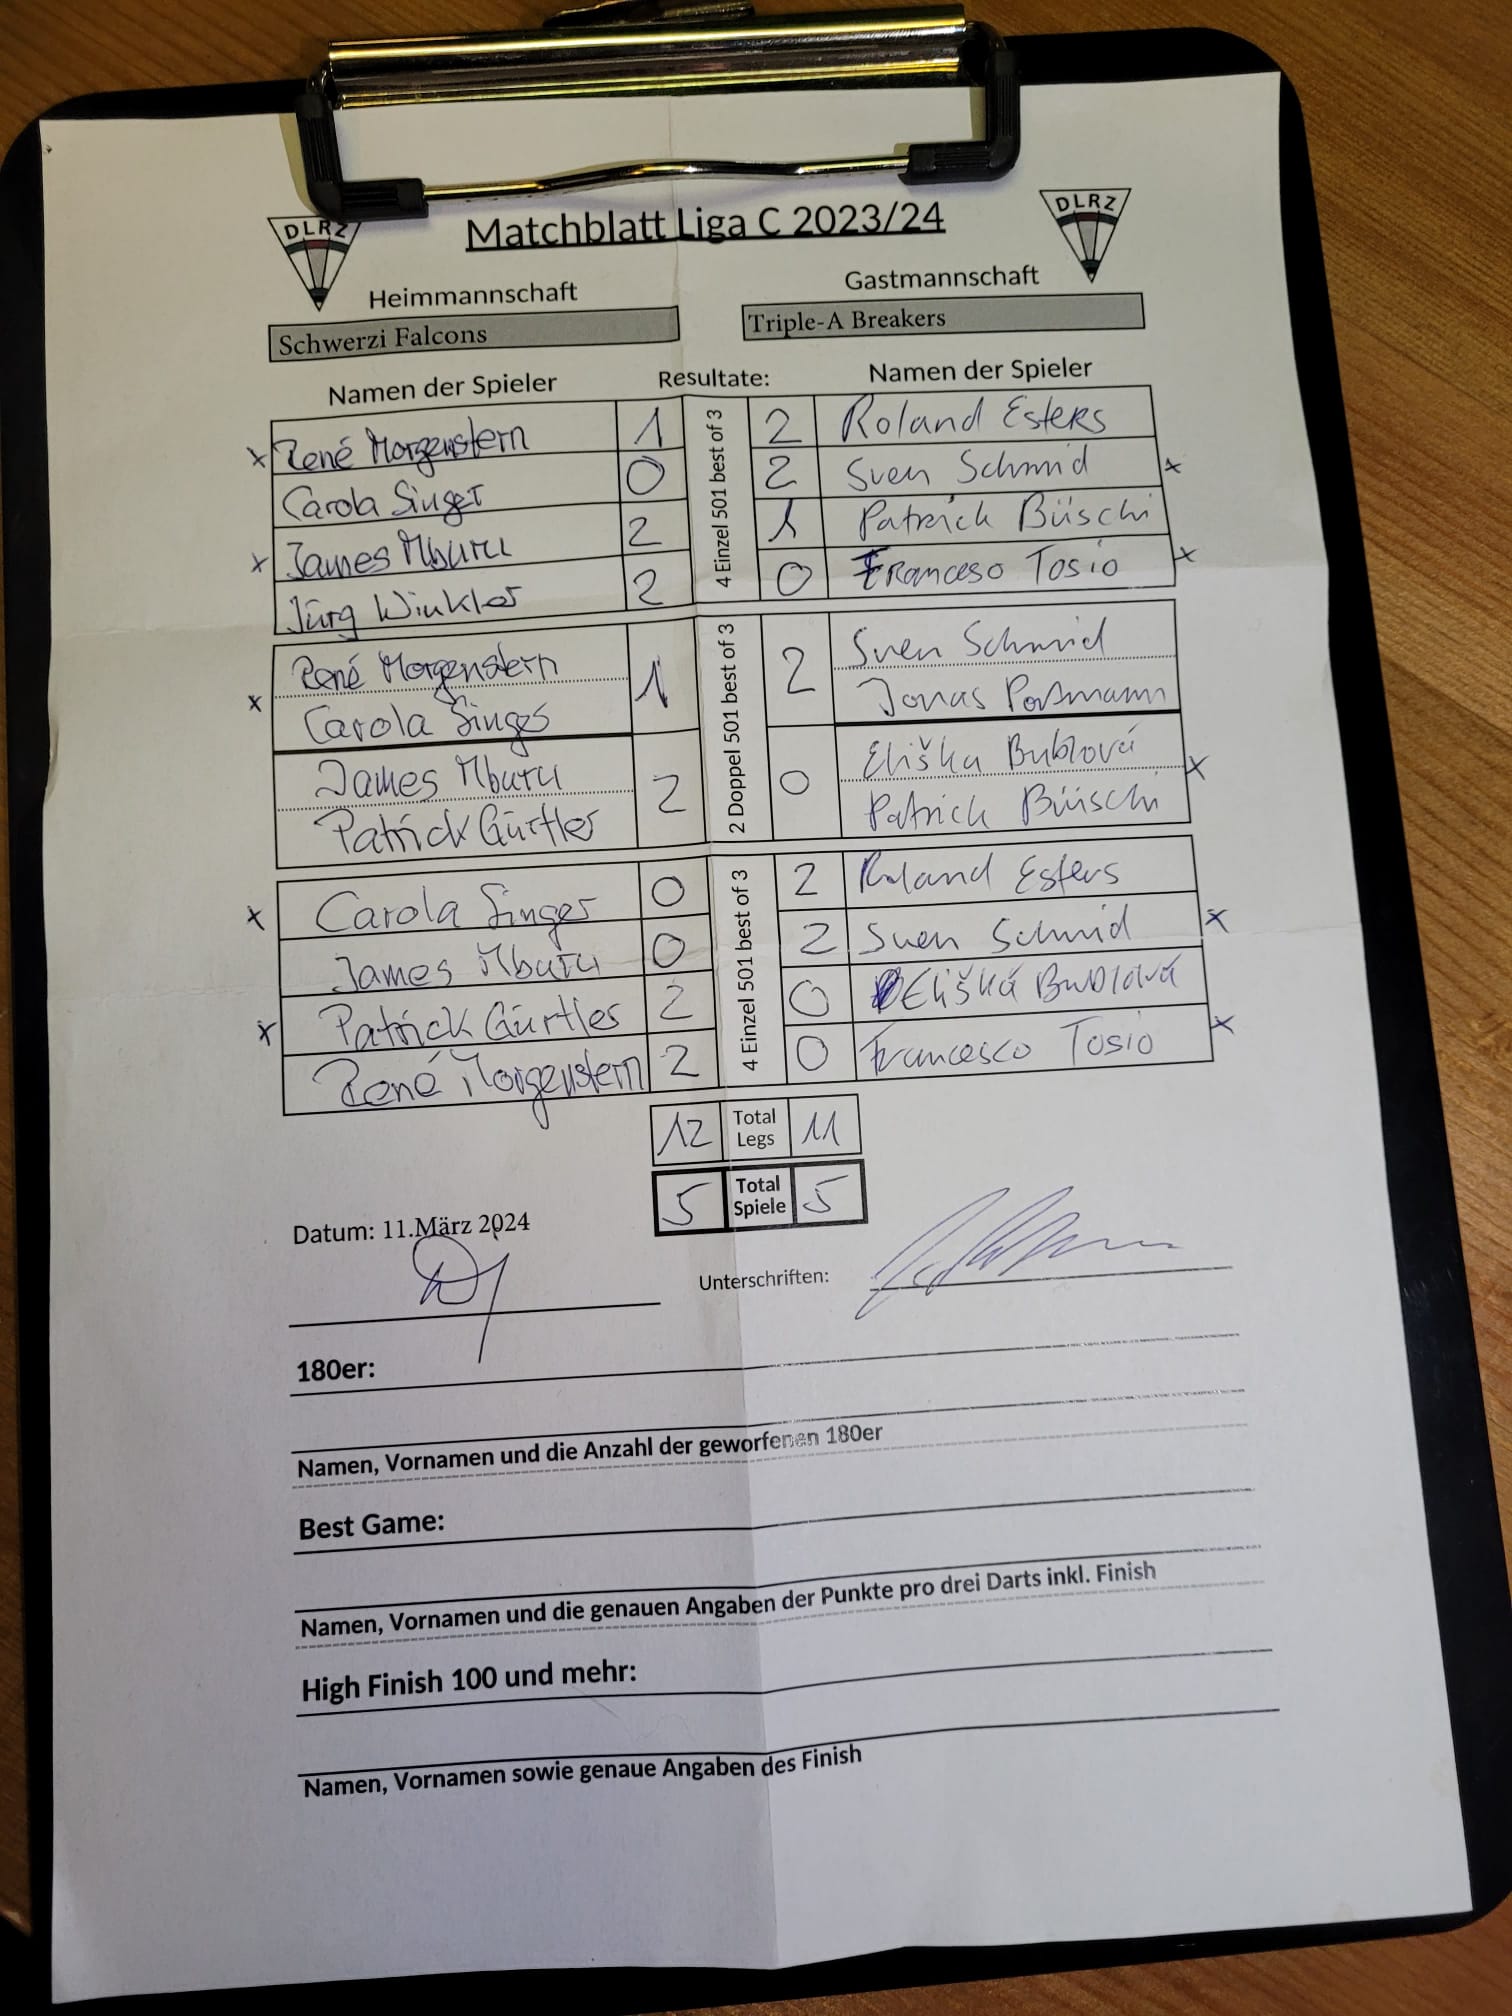 DLRZ Matchblatt Liga C 2023/24 DLRZ
Heimmannschaft Gastmannschaft
Schwerzi Falcons Triple-A Breakers
Namen der Spieler Resultate: Namen der Spieler
4 Einzel 501 best of 3
x René Morgenstern 1 2 Roland Esters
Carola Singer 0 2 Sven Schmid x
x James Mburu 2 1 Patrick Büschi
Jürg Winkler 2 0 Franceso Tosio x
2 Doppel 501 best of 3
René Morgenstern Sven Schmid
x 1 2
Carola Singer Jonas Poßmann
James Mburu Eliška Bublová
2 0 x
Patrick Gürtler Patrick Büschi
4 Einzel 501 best of 3
x Carola Singer 0 2 Roland Esters
James Mburu 0 2 Sven Schmid x
x Patrick Gürtler 2 0 Elišká Bublová
René Morgenstern 2 0 Francesco Tosio x
12 Total Legs 11
5 Total Spiele 5
Datum: 11.März 2024
Unterschriften:
180er:
Namen, Vornamen und die Anzahl der geworfenen 180er
Best Game:
Namen, Vornamen und die genauen Angaben der Punkte pro drei Darts inkl. Finish
High Finish 100 und mehr:
Namen, Vornamen sowie genaue Angaben des Finish